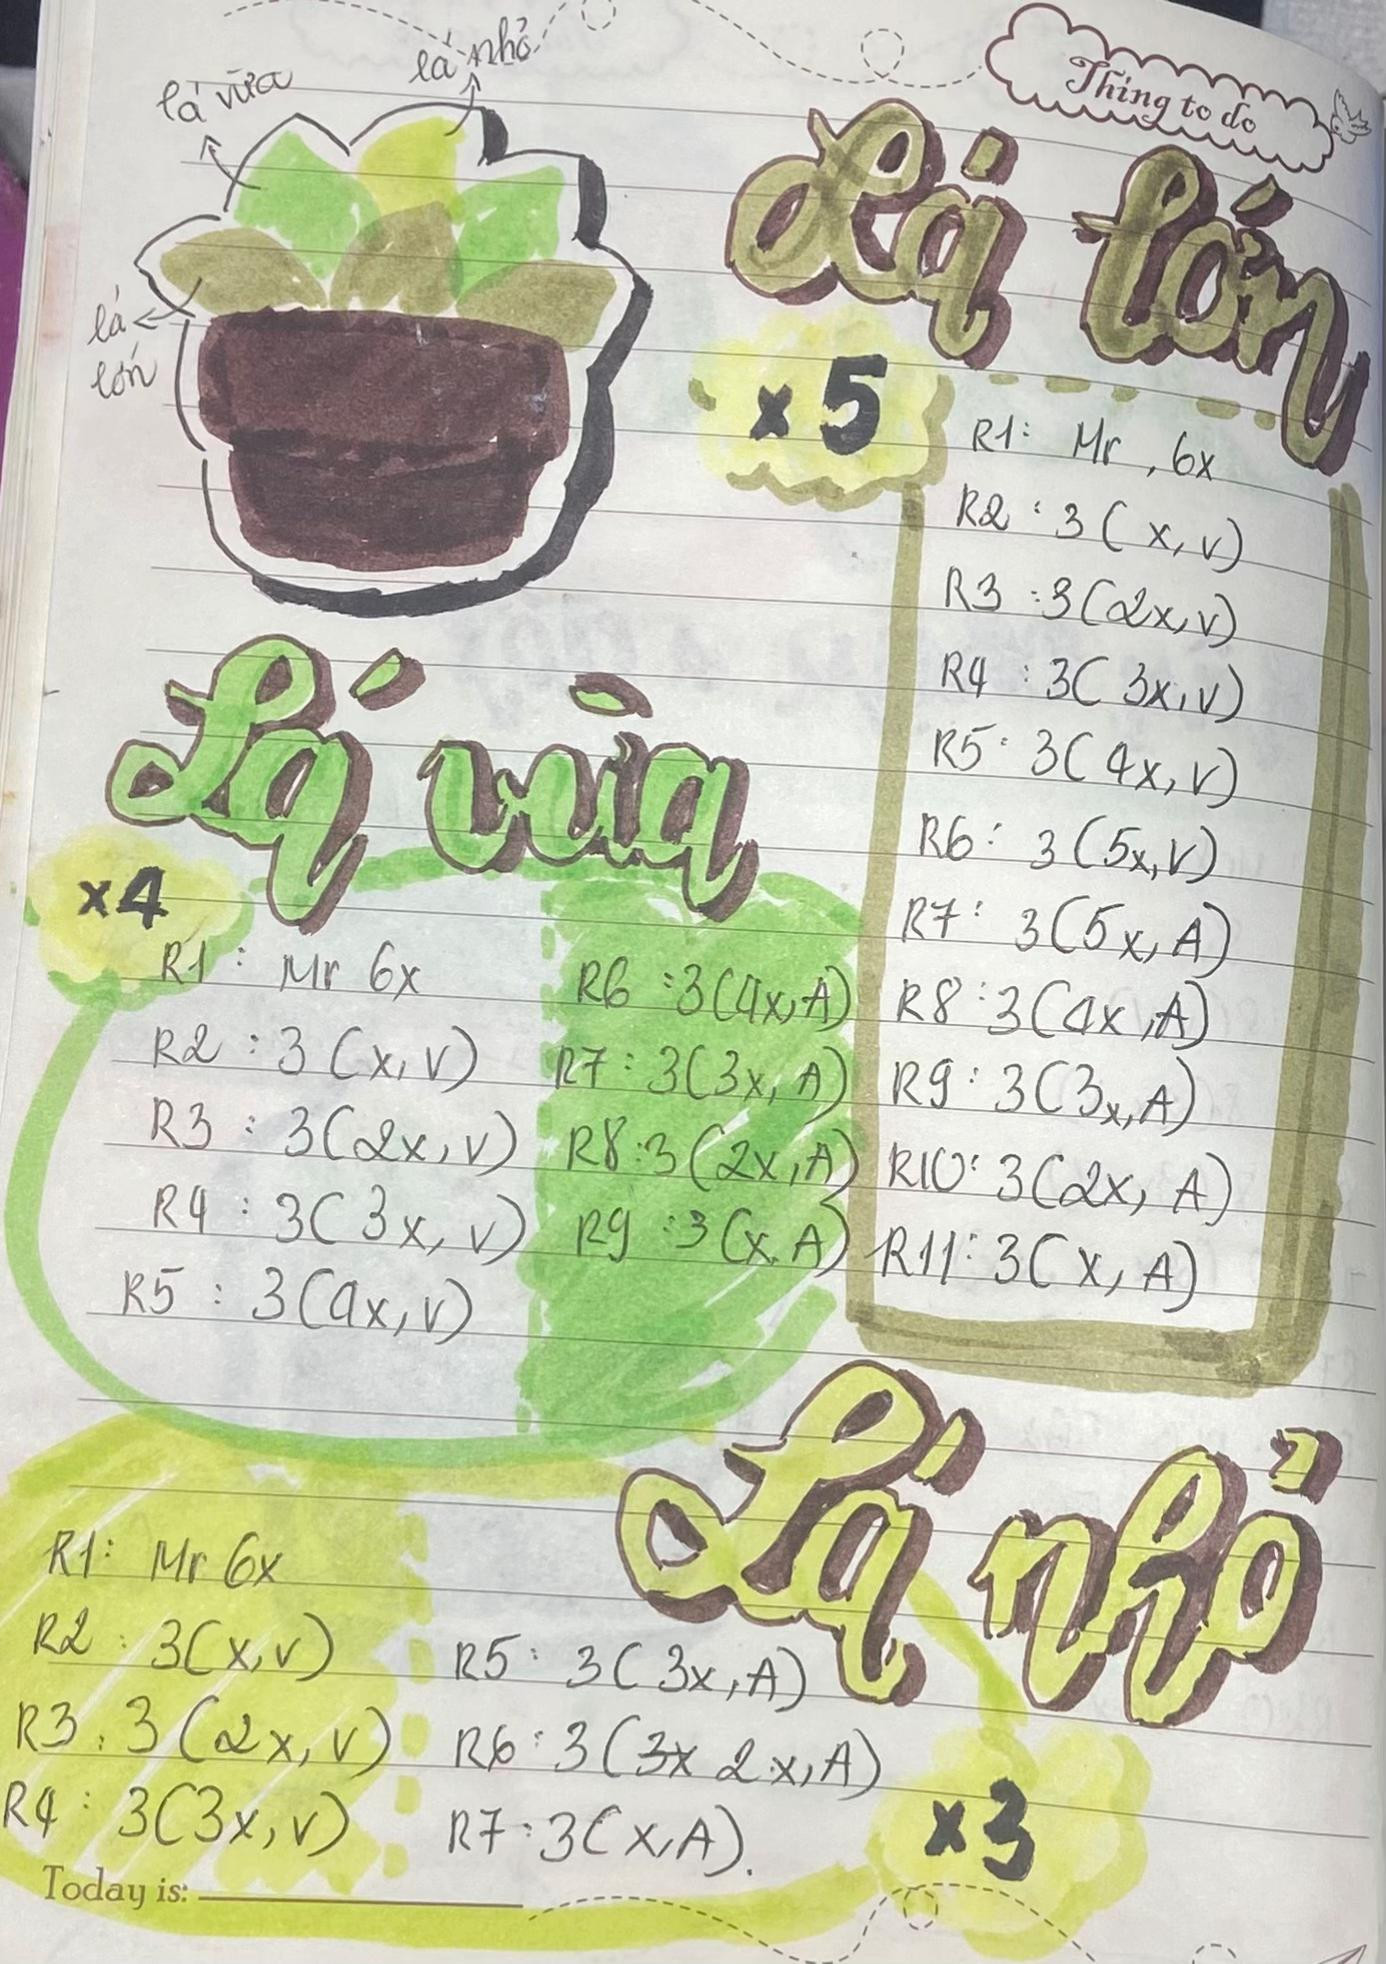 Thing to do
lá nhỏ
lá vừa
lá
lớn
Lá lớn
x 5
R1: Mr , 6x
R2 : 3 ( x, v)
R3 : 3(2x, v)
R4 : 3( 3x, v)
R5: 3( 4x, v)
R6: 3 (5x, v)
R7: 3(5x, A)
R8 : 3(4x, A)
R9 : 3(3x, A)
R10: 3(2x, A)
R11: 3( x, A)
Lá vừa
x4
R1 : Mr 6x
R2 : 3 (x, v)
R3 : 3(2x, v)
R4 : 3( 3x, v)
R5 : 3(4x, v)
R6 : 3(4x, A)
R7 : 3(3x, A)
R8 : 3 (2x, A)
R9 : 3 (x, A)
Lá nhỏ
x3
R1: Mr 6x
R2 : 3(x, v)
R3 : 3 (2x, v)
R4 : 3(3x, v)
R5 : 3( 3x, A)
R6 : 3 (3x 2x, A)
R7 : 3( x, A).
Today is: